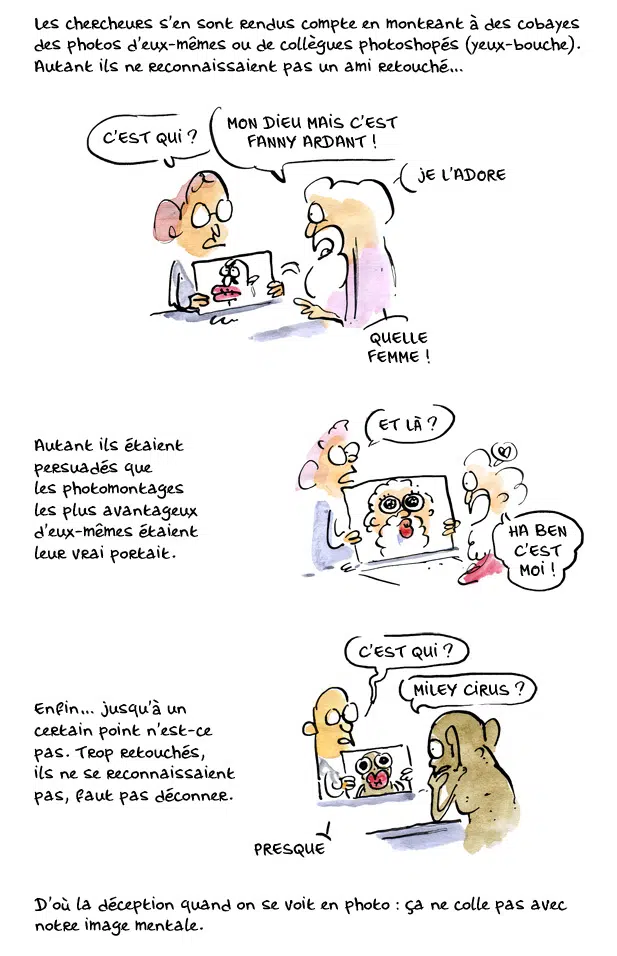 Les chercheurs s'en sont rendus compte en montrant à des cobayes
des photos d'eux-mêmes ou de collègues photoshopés (yeux-bouche).
Autant ils ne reconnaissaient pas un ami retouché...
C'EST QUI ?
MON DIEU MAIS C'EST
FANNY ARDANT !
JE L'ADORE
QUELLE
FEMME !
Autant ils étaient
persuadés que
les photomontages
les plus avantageux
d'eux-mêmes étaient
leur vrai portait.
ET LÀ ?
HA BEN
C'EST
MOI !
Enfin... jusqu'à un
certain point n'est-ce
pas. Trop retouchés,
ils ne se reconnaissaient
pas, faut pas déconner.
C'EST QUI ?
MILEY CIRUS ?
PRESQUE
D'où la déception quand on se voit en photo : ça ne colle pas avec
notre image mentale.